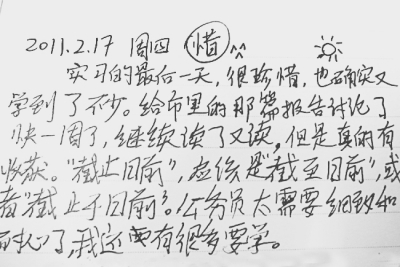 2011.2.17 周四 惜 ^^
实习的最后一天,很珍惜,也确实又
学到了不少。给市里的那篇报告讨论了
快一周了,继续读了又读,但是真的有
收获。"截止目前",应该是"截至目前",或
者"截止于目前"。公务员太需要细致和
耐心了,我还要有很多要学。